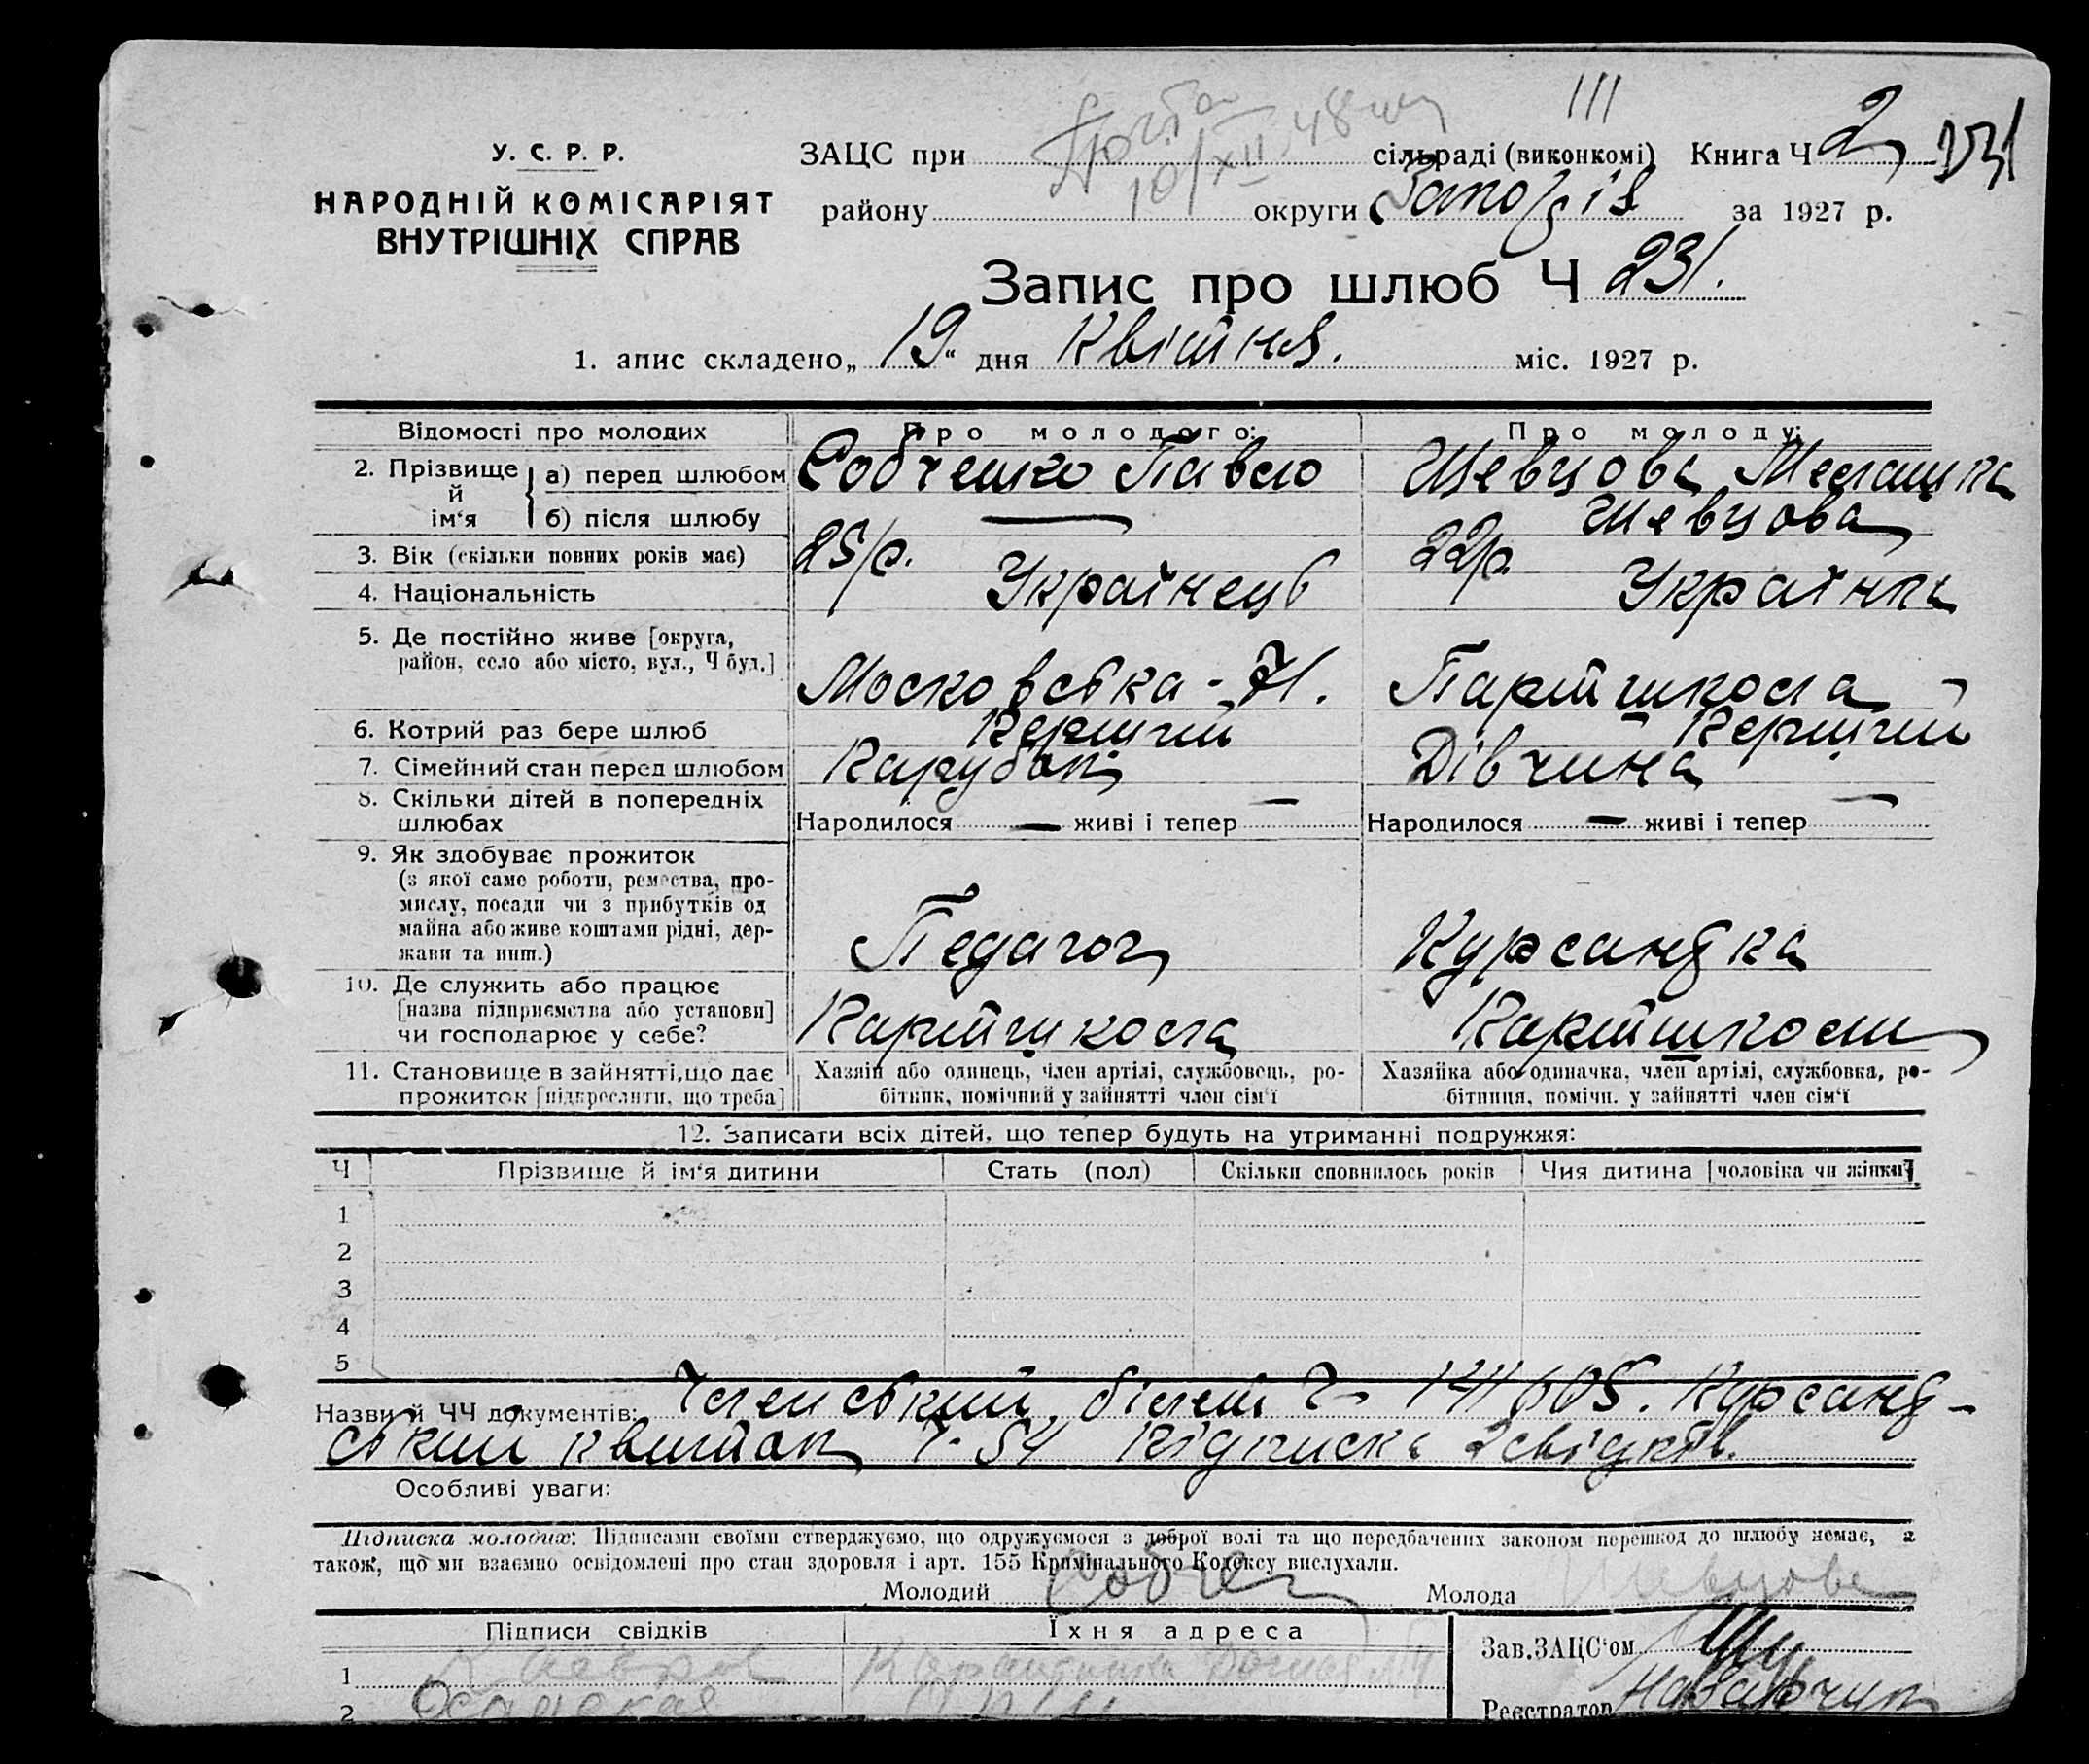 III
У. С. Р. Р.
НАРОДНІЙ КОМІСАРІЯТ
ВНУТРІШНІХ СПРАВ
ЗАЦС при 10/XII 48 сільраді (виконкомі) Книга Ч 2
району округи за 1927 р.
Запис про шлюб Ч 231.
1. апис складено „19“ дня Квітня. міс. 1927 р.
Відомості про молодих Про молодого: Про молоду:
2. Прізвище й ім‘я а) перед шлюбом Собченко Павло Шевцова Мелашка
б) після шлюбу — Шевцова
3. Вік (скільки повних років має) 25/р. 22/р.
4. Національність Українець Українка
5. Де постійно живе [округа,
район, село або місто, вул., Ч буд.]
Московська - 71. Партшкола
6. Котрий раз бере шлюб Перший Перший
7. Сімейний стан перед шлюбом Парубок Дівчина
8. Скільки дітей в попередніх
шлюбах Народилося — живі і тепер — Народилося — живі і тепер —
9. Як здобуває прожиток
(з якої саме роботи, ремества, про-
мислу, посади чи з прибутків од
майна або живе коштами рідні, дер-
жави та инш.) Педагог Курсандка
10. Де служить або працює
[назва підприємства або установи]
чи господарює у себе? Партшкола Партшколи
11. Становище в зайнятті, що дає
прожиток [підкреслити, що треба]
Хазяїн або одинець, член артілі, службовець, ро-
бітник, помічний у зайнятті член сім‘ї
Хазяйка або одиначка, член артілі, службовка, ро-
бітниця, помічн. у зайнятті член сім‘ї
12. Записати всіх дітей, що тепер будуть на утриманні подружжя:
Ч Прізвище й ім‘я дитини Стать (пол) Скільки сповнилось років Чия дитина [чоловіка чи жінки]
1
2
3
4
5
Назви й ЧЧ документів: Членський білет Ч- 605. Курсанд-
ський квиток Ч- 54 Підписка 2 свідків.
Особливі уваги:
Підписка молодих: Підписами своїми стверджуємо, що одружуємося з доброї волі та що передбачених законом перешкод до шлюбу немає, а
також, що ми взаємно освідомлені про стан здоровля і арт. 155 Кримінального Кодексу вислухали.
Молодий Собчен Молода Шевцова
Підписи свідків Їхня адреса Зав. ЗАЦС‘ом
1
2 Реєстратор